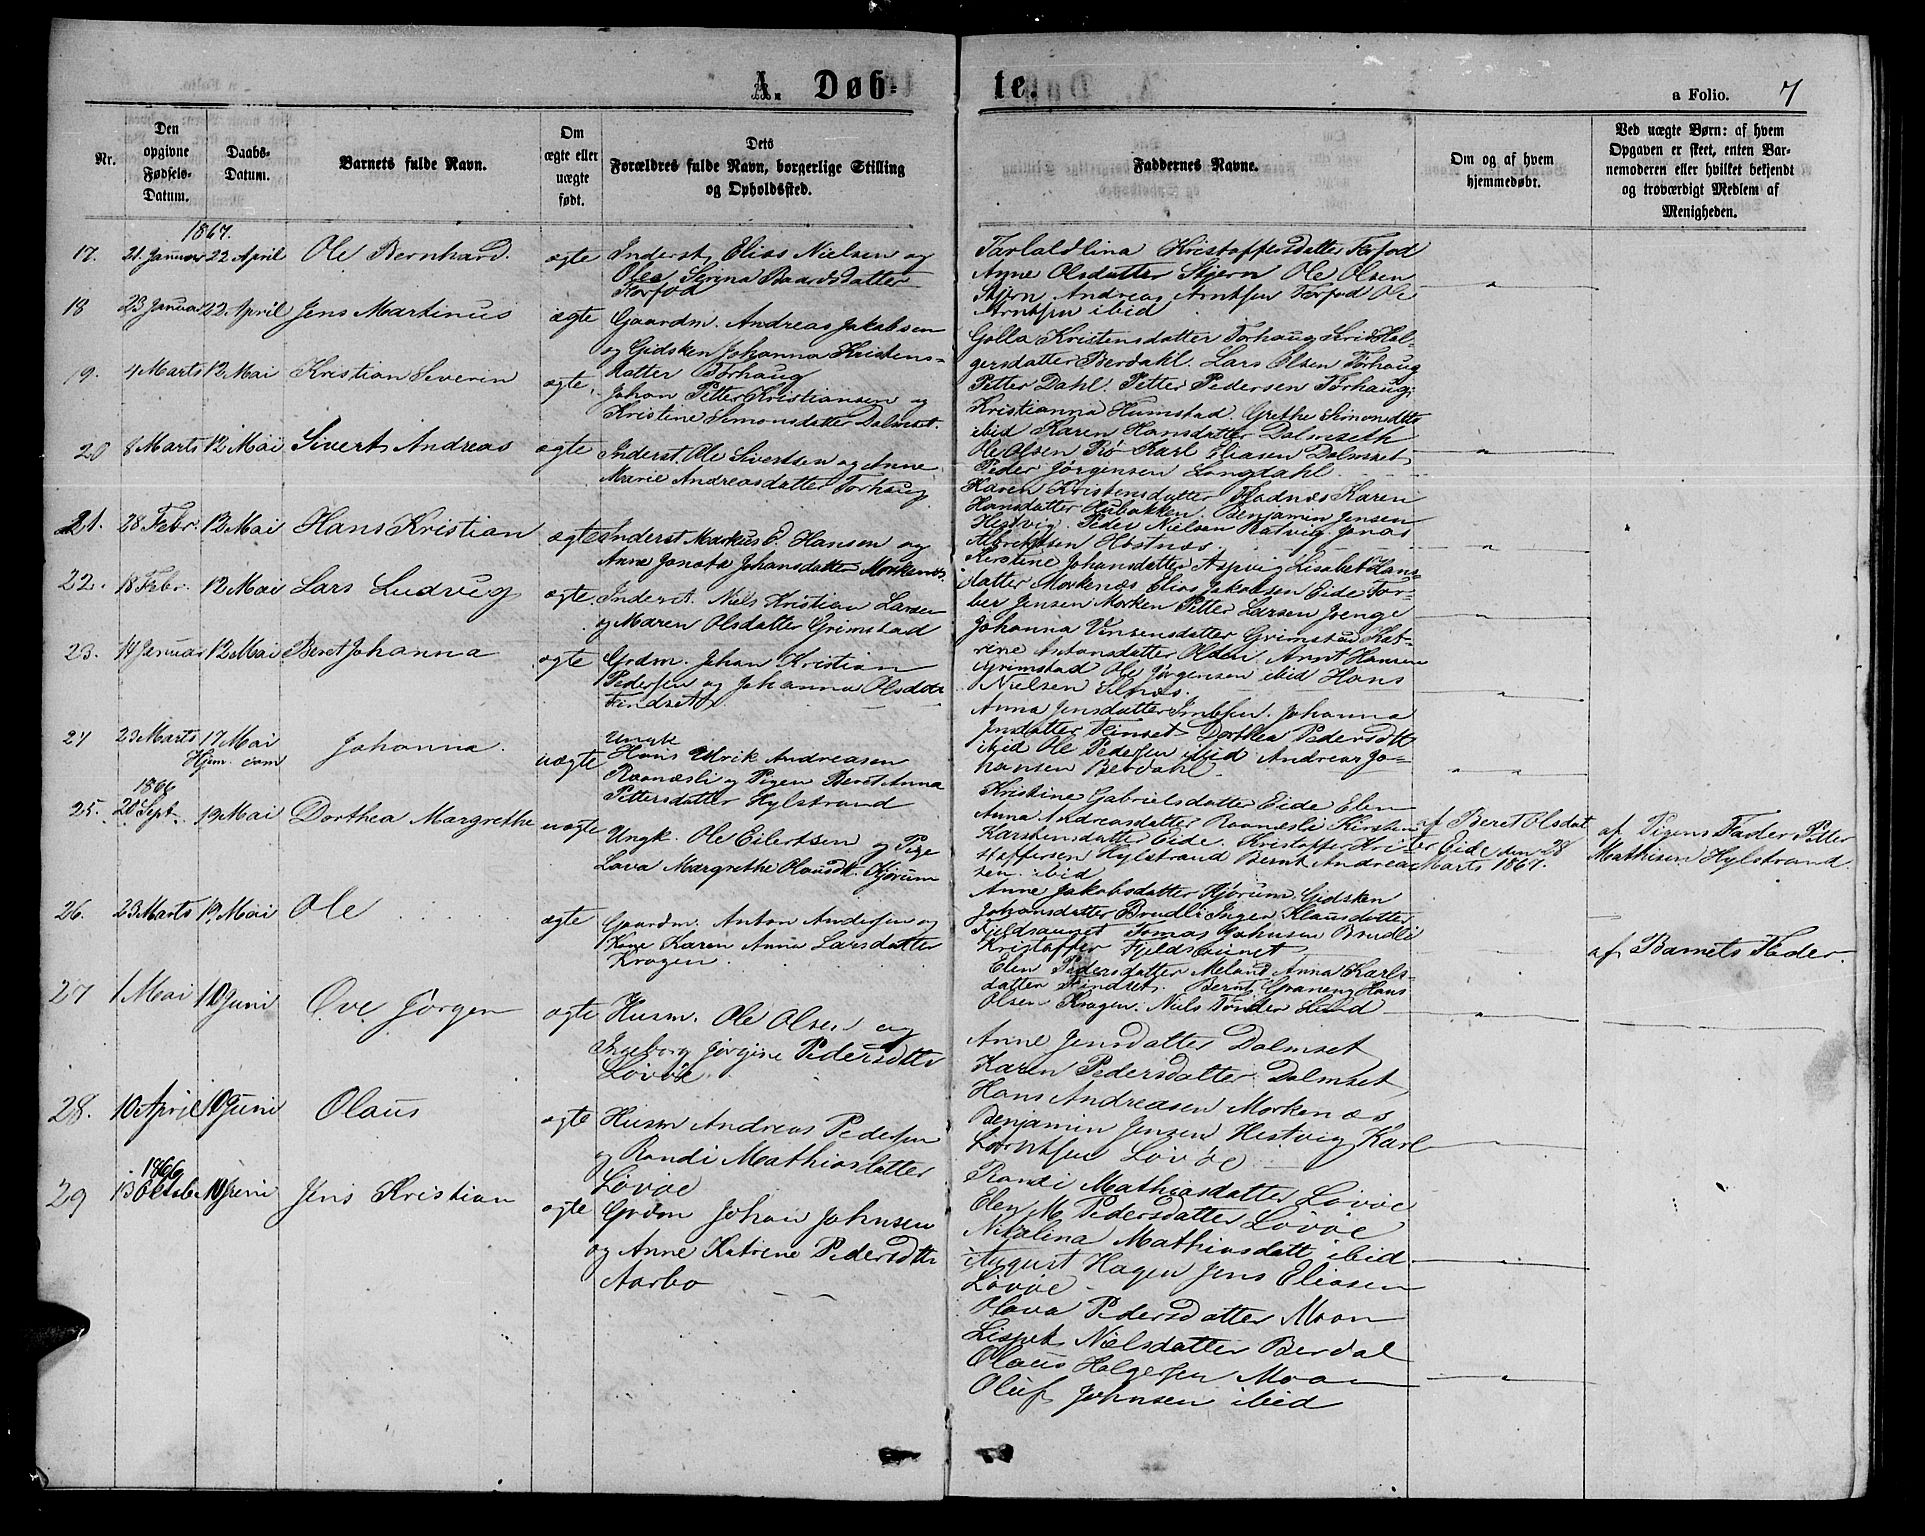 A. Døbte.
a Folio. 7
Nr.
Den opgivne Fødsels-Datum.
Daabs-Datum.
Barnets fulde Navn.
Om ægte eller uægte født.
Dets Forældres fulde Navn, borgerlige Stilling og Opholdssted.
Faddernes Navne.
Om og af hvem hjemmedøbt.
Ved uægte Børn: af hvem Opgaven er skeet, enten Barnemoderen eller hvilket bekjendt og troværdigt Medlem af Menigheden.
1867.
17. 21. Januar 22 April Ole Bernhard. ægte Inderst Elias Nielsen og
Olea Serina Baardsdatter
Forfod
Kristoffersdatter Forfod
Anne Olsdatter Stjern Ole Olsen
Stjern Andreas Arntsen Forfod Ole
Arntsen ibid
18 23 Januar 22. April Jens Martinus ægte Gaardm. Andreas Jakobsen
og Gidsken Johanna Kristens-
datter Torhaug
Golla Kristensdatter Torhaug
gersdatter Berdahl. Lars Olsen Torhaug
Petter Dahl. Petter Pedersen Torhaug
19. 4 Marts 12 Mai Kristian Severin ægte. Johan Petter Kristiansen og
Kristine Simonsdatter Dalmset.
Kristianna Humstad. Grethe Simonsdtt
ibid Karen Hansdatter Dalmseth
Ole Olsen Rø Karl Eliasen Dalmset
Peder Jørgensen Langdahl
20 8 Marts 12 Mai Sivert Andreas ægte Inderst. Ole Sivertsen og Anne
Marie Andreasdatter Torhaug
Karen Kristensdatter Hadnæs Karen
Hansdatter Benjamin Jensen
Hestvig. Peder Nielsen Ratvig Jonas
Albrektsen Hostnæs.
21. 28 Febr. 12 Mai Hans Kristian ægte Inderst Markus E. Hansen og
Anne Joneta Johansdatter Morkenæs
Kirstine Johansdatter Aspvig Lisabet Hans-
datter Morkenæs Elias Jakobsen Eide Tor-
ber Jensen Morken Petter Larsen Jenge
22. 18 Febr. 12 Mai Lars Ludvig ægte Inderst. Niels Kristian Larsen
og Maren Olsdatter Grimstad
Johanna Vinsensdatter Grimstad Kat-
rine Antonsdatter Olden Arnt Hansen
Grimstad Ole Jørgensen ibid Hans
Nielsen Selnæs.
23. 14 Januar 12 Mai Beret Johanna ægte Grdm. Johan Kristian
Pedersen og Johanna Olsdatter
Findset
Anna Jensdatter Johanna
Jnsdatter Finset Dorthea Pedersdtt
ibid Ole Pedersen ibid Andreas Jo-
hansen Berdahl
24 23 Marts 17 Mai Johanna. uægte Ungk
Hjem.
Hans Ulrik Andreasen
Raanæsli og Pigen Beret Anna
Pettersdatter Hylstrand
Kristine Gabrielsdatter Eide Elen
Anna Andreasdatter Raanæsli Kirsten
Karstensdatter Eide. Kristoffer Kri-
stoffersen Hylstrand Bernt Andrea-
sen ibid
af Beret Olsdat
ter Eide den 28
Marts 1867.
af Pigens Fader Petter
Mathisen Hylstrand.
1866
25. 20 Sept. 19 Mai Dorthea Margrethe uægte Ungk. Ole Eilertsen og Pige
Lava Margrethe Olausdt. Kjørum
Anne Jakobsdatter Kjørum Gidsken
Johansdatter Brudli Inger Klausdatter
Fjeldsaunet Tomas Johnsen Brudli
Kristoffer Fjeldsaunet
af Barnets Fader.
26. 23 Marts 19 Mai Ole ægte Gaardm. Anton Andersen og
Kone Karen Anna Larsdatter
Kragen.
Elen Pedersdatter Meland Anna Karls-
datter Findset. Bernt Graneng Hans
Olsen Kragen. Niels Tønder Lund
27 1 Mai 10 Juni Ove Jørgen ægte Husm. Ole Olsen og
Ingeborg Jørgine Pedersdatter
Løvøe.
Anne Jensdatter Dalmset
Karen Pedersdatter Dalmset
Hans Andreasen Morkenæs
Benjamin Jensen Hestvig Karl
Lorntsen Løvøe
28. 10 April 10 Juni Olaus ægte Husm Andreas Pedersen
og Randi Mathiasdatter
Løvøe
Randi Mathiasdatter Løvøe
Elen M. Pedersdatter Løvøe
Nikolina Mathiasdatt ibid
August Hagen Jens Eliasen
Løvøe
1866
29 13 Oktobe 10 Juni Jens Kristian ægte Grdm Johan Johnsen
og Anne Katrine Pedersdtt
Aarbo
Olava Pedersdatter Moan
Lisbet Nielsdatter Berdal
Olaus Holgersen Moan
Oluf Johnsen ibid